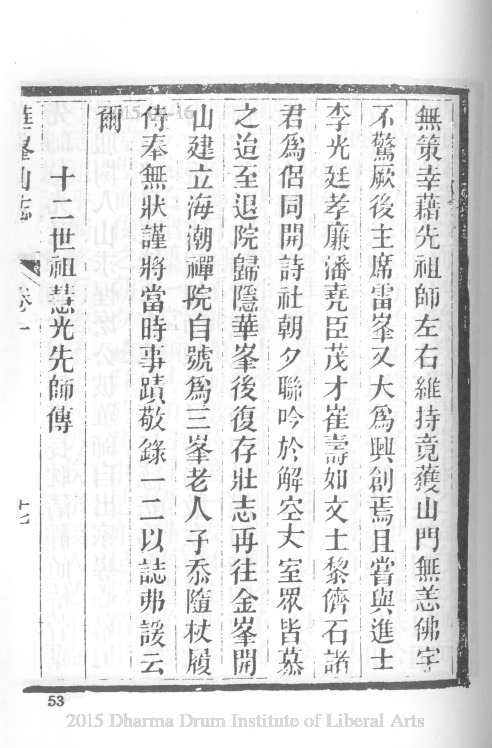 無策幸藉先祖師左右維持竟獲山門無恙佛字
不驚厥後主席雷峯又大為興創焉且嘗與進士
李光廷孝廉潘堯臣茂才崔壽如文士黎儕石諸
君為侶同開詩社朝夕聯吟於解空丈室眾皆慕
之迨至退院歸隱華峯後復存壯志再往金峯開
山建立海潮禪院自號為三峯老人子忝隨杖履
侍奉無狀謹將當時事蹟敬錄一二以誌弗諼云
爾
十二世祖慧光先師傳
華峯山志
卷一
十七
53
2015 Dharma Drum Institute of Liberal Arts